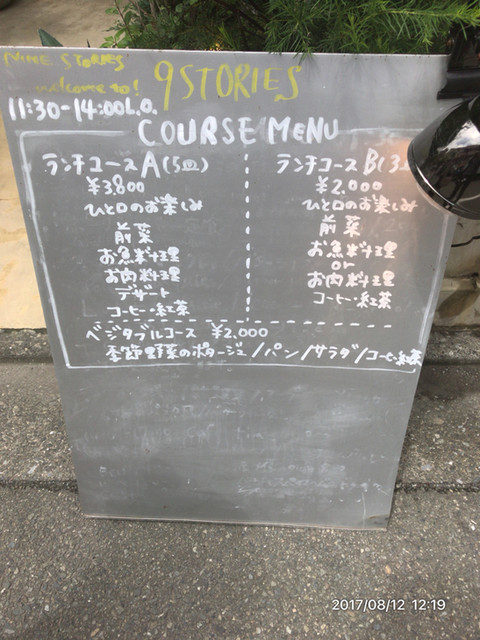 NINE STORIES
welcome to!
9STORIES
11:30-14:00L.O.
COURSE MENU
ランチコースA(5皿)
¥3800
ひと口のお楽しみ
前菜
お魚料理
お肉料理
デザート
コーヒー・紅茶
ランチコースB(3皿
¥2,000
ひと口のお楽しみ
前菜
お魚料理
or
お肉料理
コーヒー・紅茶
ベジタブルコース ¥2,000
季節野菜のポタージュ/パン/サラダ/コーヒー・紅茶
2017/08/12 12:19